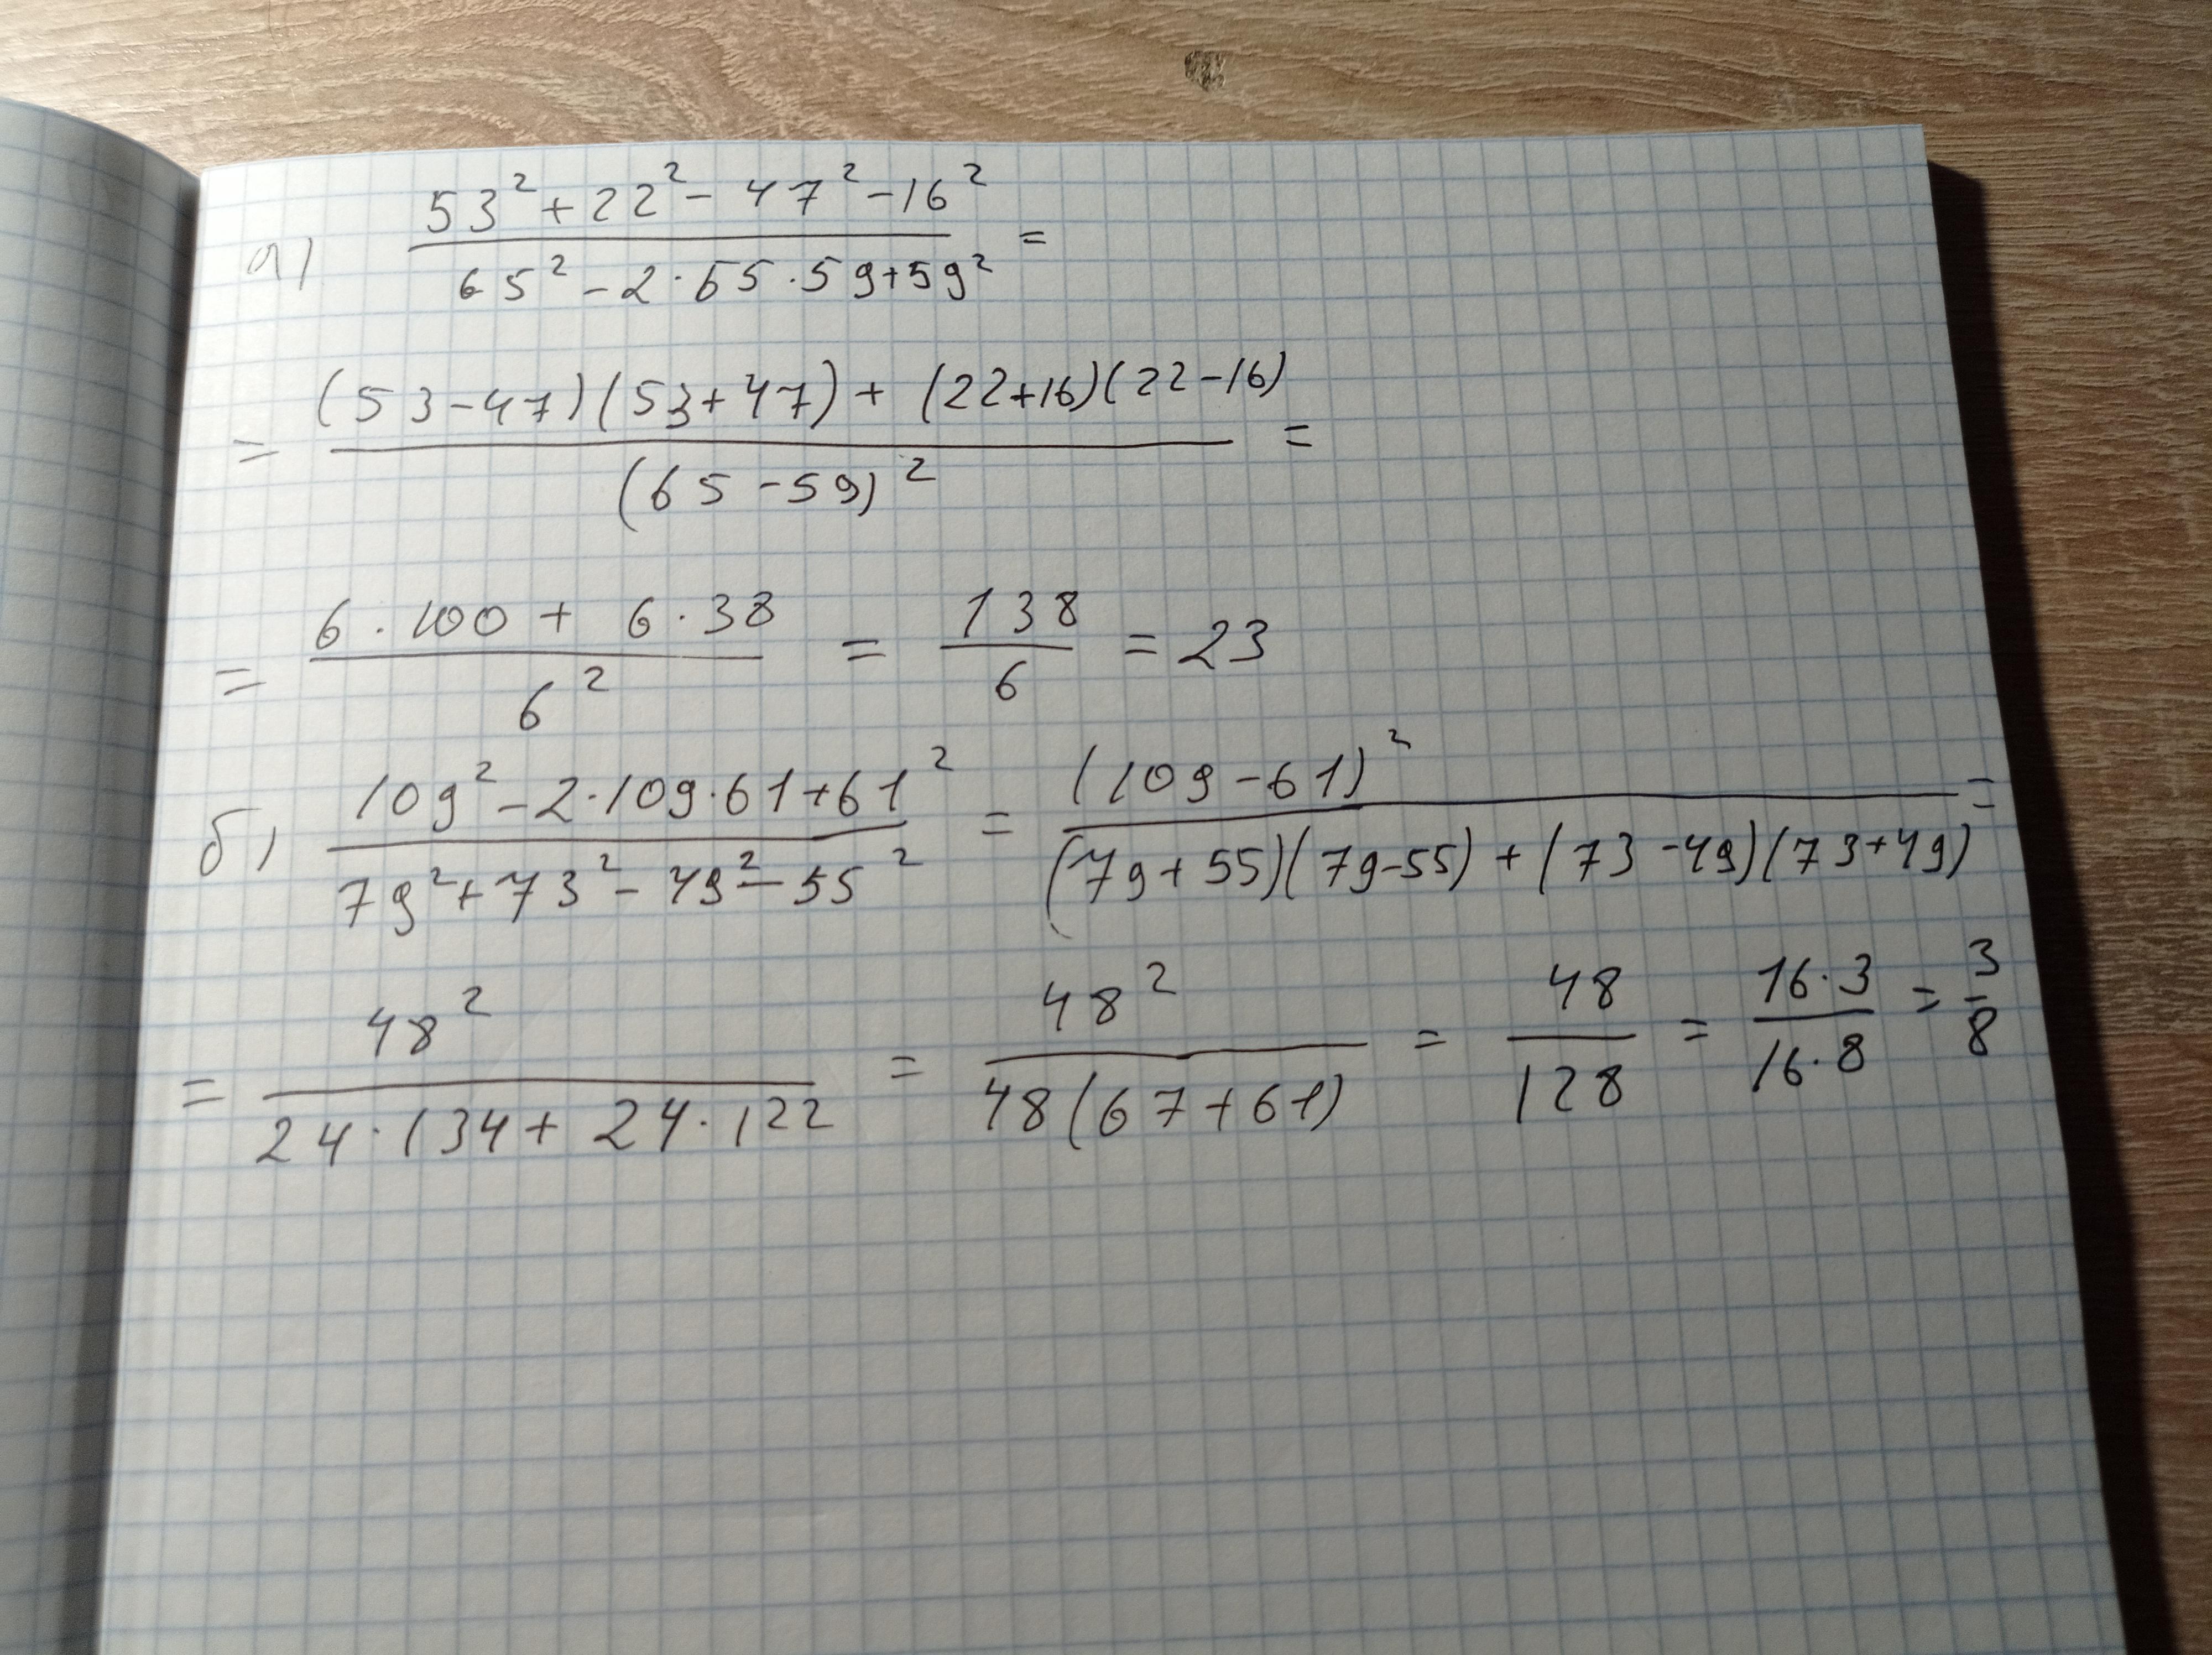 а) (53² + 22² - 47² - 16²) / (65² - 2·65·59 + 59²) =
= ((53 - 47)(53 + 47) + (22 + 16)(22 - 16)) / (65 - 59)² =
= (6·100 + 6·38) / 6² = 138/6 = 23
б) (109² - 2·109·61 + 61²) / (79² + 73² - 49² - 55²) = (109 - 61)² / ((79 + 55)(79 - 55) + (73 - 49)(73 + 49)) =
= 48² / (24·134 + 24·122) = 48² / (48(67 + 61)) = 48/128 = (16·3)/(16·8) = 3/8